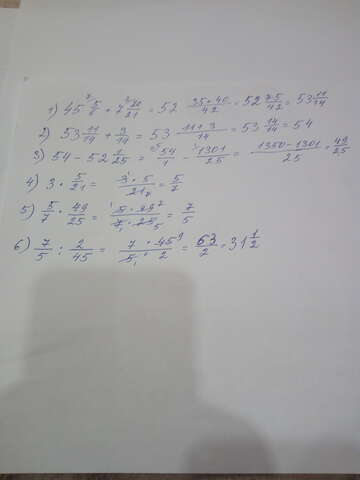 1) 45 5/6 + 7 20/21 = 52 35+40/42 = 52 75/42 = 53 11/14
2) 53 11/14 + 3/14 = 53 11+3/14 = 53 14/14 = 54
3) 54 - 52 1/25 = 54/1 - 1301/25 = 1350-1301/25 = 49/25
4) 3 · 5/21 = 3·5/21 7 = 5/7
5) 5/7 · 49/25 = 5·49/7·25 = 7/5
6) 7/5 : 2/45 = 7·45 9/5 1·2 = 63/2 = 31 1/2